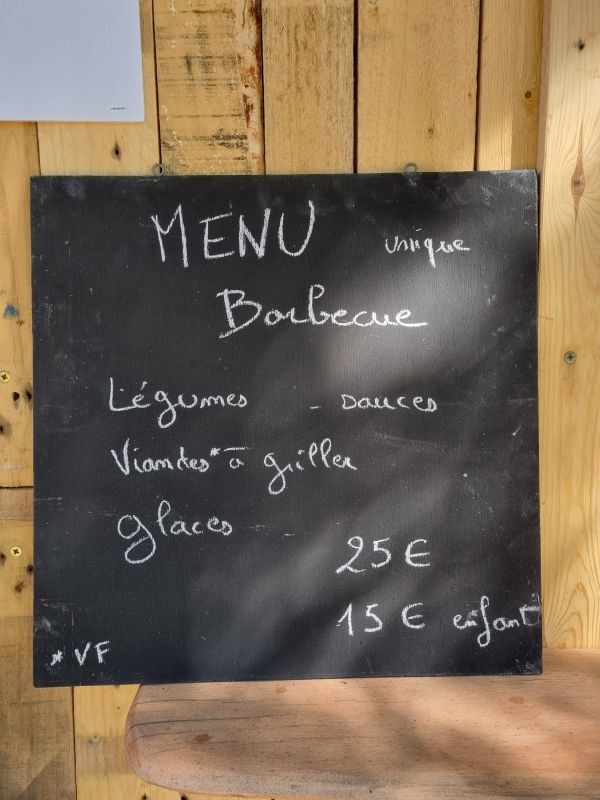 MENU unique
Barbecue
Légumes - sauces
Viandes* à griller
glaces
25 €
15 € enfant
* VF